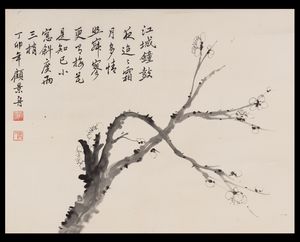 江城鐘鼓
夜迢迢霜
月多情
照寂寥
更有梅花
是知己小
窓斜度兩
三梢
丁卯年顧景舟